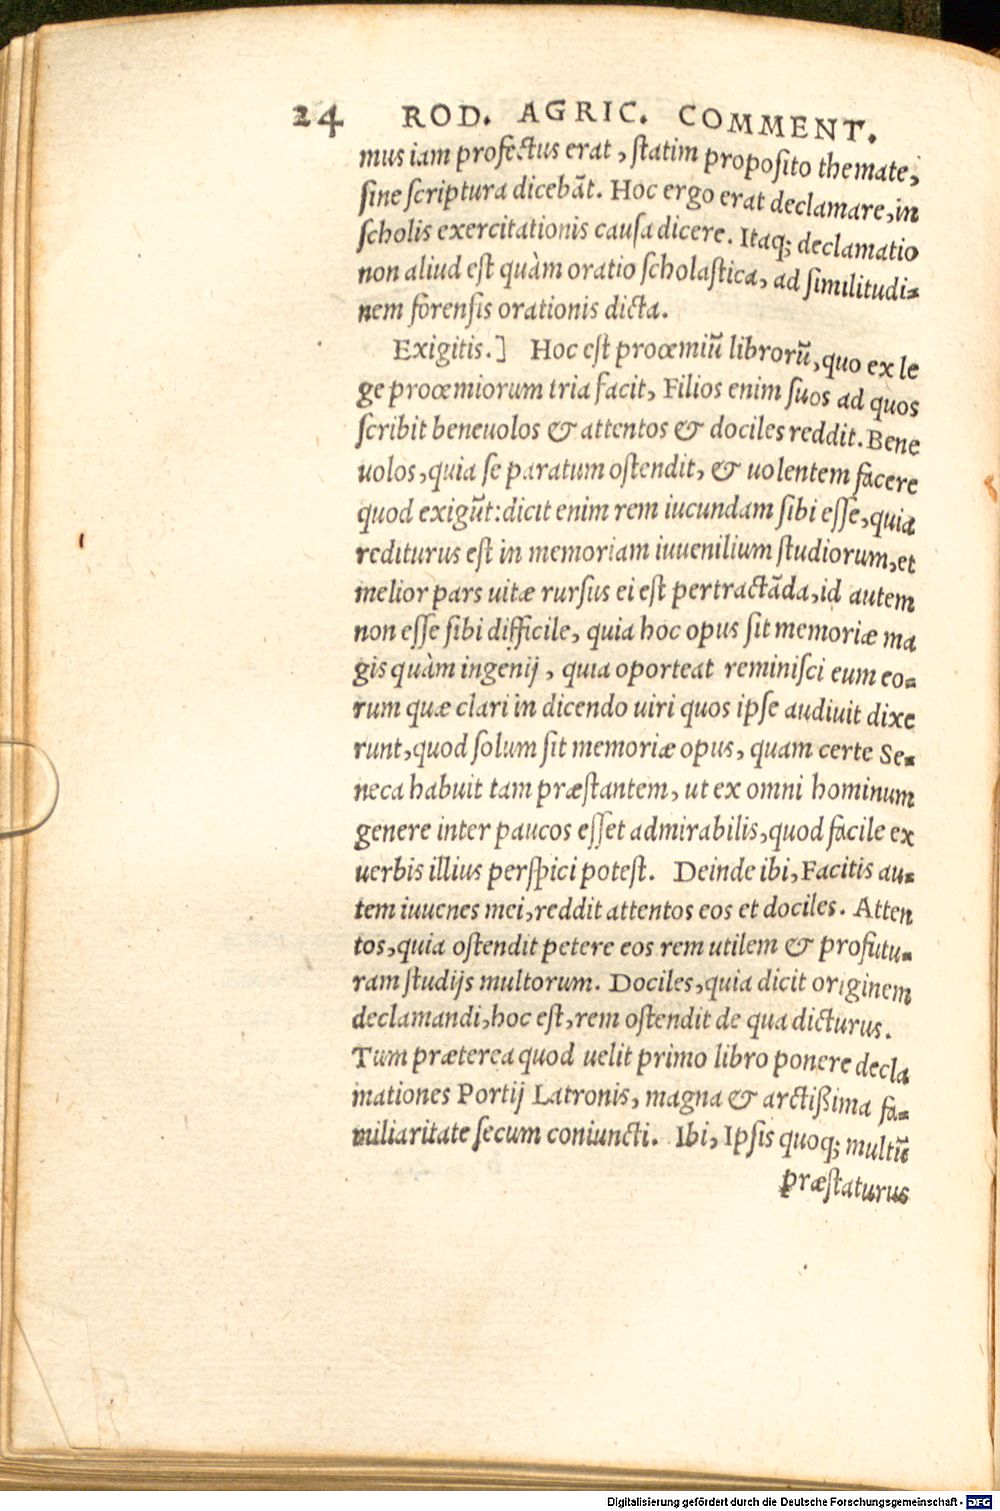 24 ROD. AGRIC. COMMENT.
mus iam profectus erat, ſtatim propoſito themate,
ſine ſcriptura dicebãt. Hoc ergo erat declamare, in
ſcholis exercitationis cauſa dicere. Itaq; declamatio
non aliud eſt quàm oratio ſcholaſtica, ad ſimilitudi-
nem forenſis orationis dicta.
Exigitis.] Hoc eſt proœmiũ librorũ, quo ex le
ge proœmiorum tria facit, Filios enim ſuos ad quos
ſcribit beneuolos & attentos & dociles reddit. Bene
uolos, quia ſe paratum oſtendit, & uolentem facere
quod exigũt: dicit enim rem iucundam ſibi eſſe, quia
rediturus eſt in memoriam iuuenilium ſtudiorum, et
melior pars uitæ rurſus ei eſt pertractãda, id autem
non eſſe ſibi difficile, quia hoc opus ſit memoriæ ma
gis quàm ingenij, quia oporteat reminiſci eum eo-
rum quæ clari in dicendo uiri quos ipſe audiuit dixe
runt, quod ſolum ſit memoriæ opus, quam certe Se-
neca habuit tam præſtantem, ut ex omni hominum
genere inter paucos eſſet admirabilis, quod facile ex
uerbis illius perſpici poteſt. Deinde ibi, Facitis au-
tem iuuenes mei, reddit attentos eos et dociles. Atten
tos, quia oſtendit petere eos rem utilem & profutu-
ram ſtudijs multorum. Dociles, quia dicit originem
declamandi, hoc eſt, rem oſtendit de qua dicturus.
Tum præterea quod uelit primo libro ponere decla
mationes Portij Latronis, magna & arctißima fa-
miliaritate ſecum coniuncti. Ibi, Ipſis quoq; multũ
præſtaturus
Digitalisierung gefördert durch die Deutsche Forschungsgemeinschaft - DFG